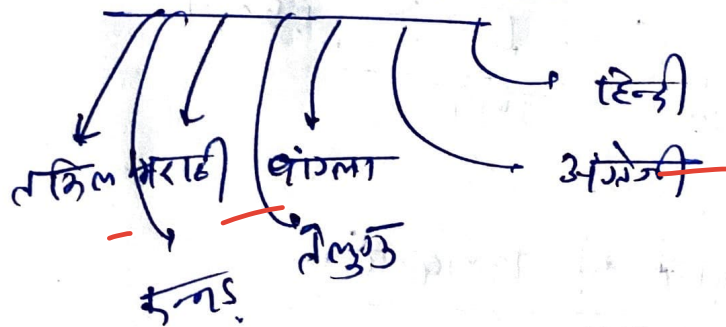 हिन्दी
तमिल मराठी बांग्ला अंग्रेजी
तेलुगु
कन्नड़